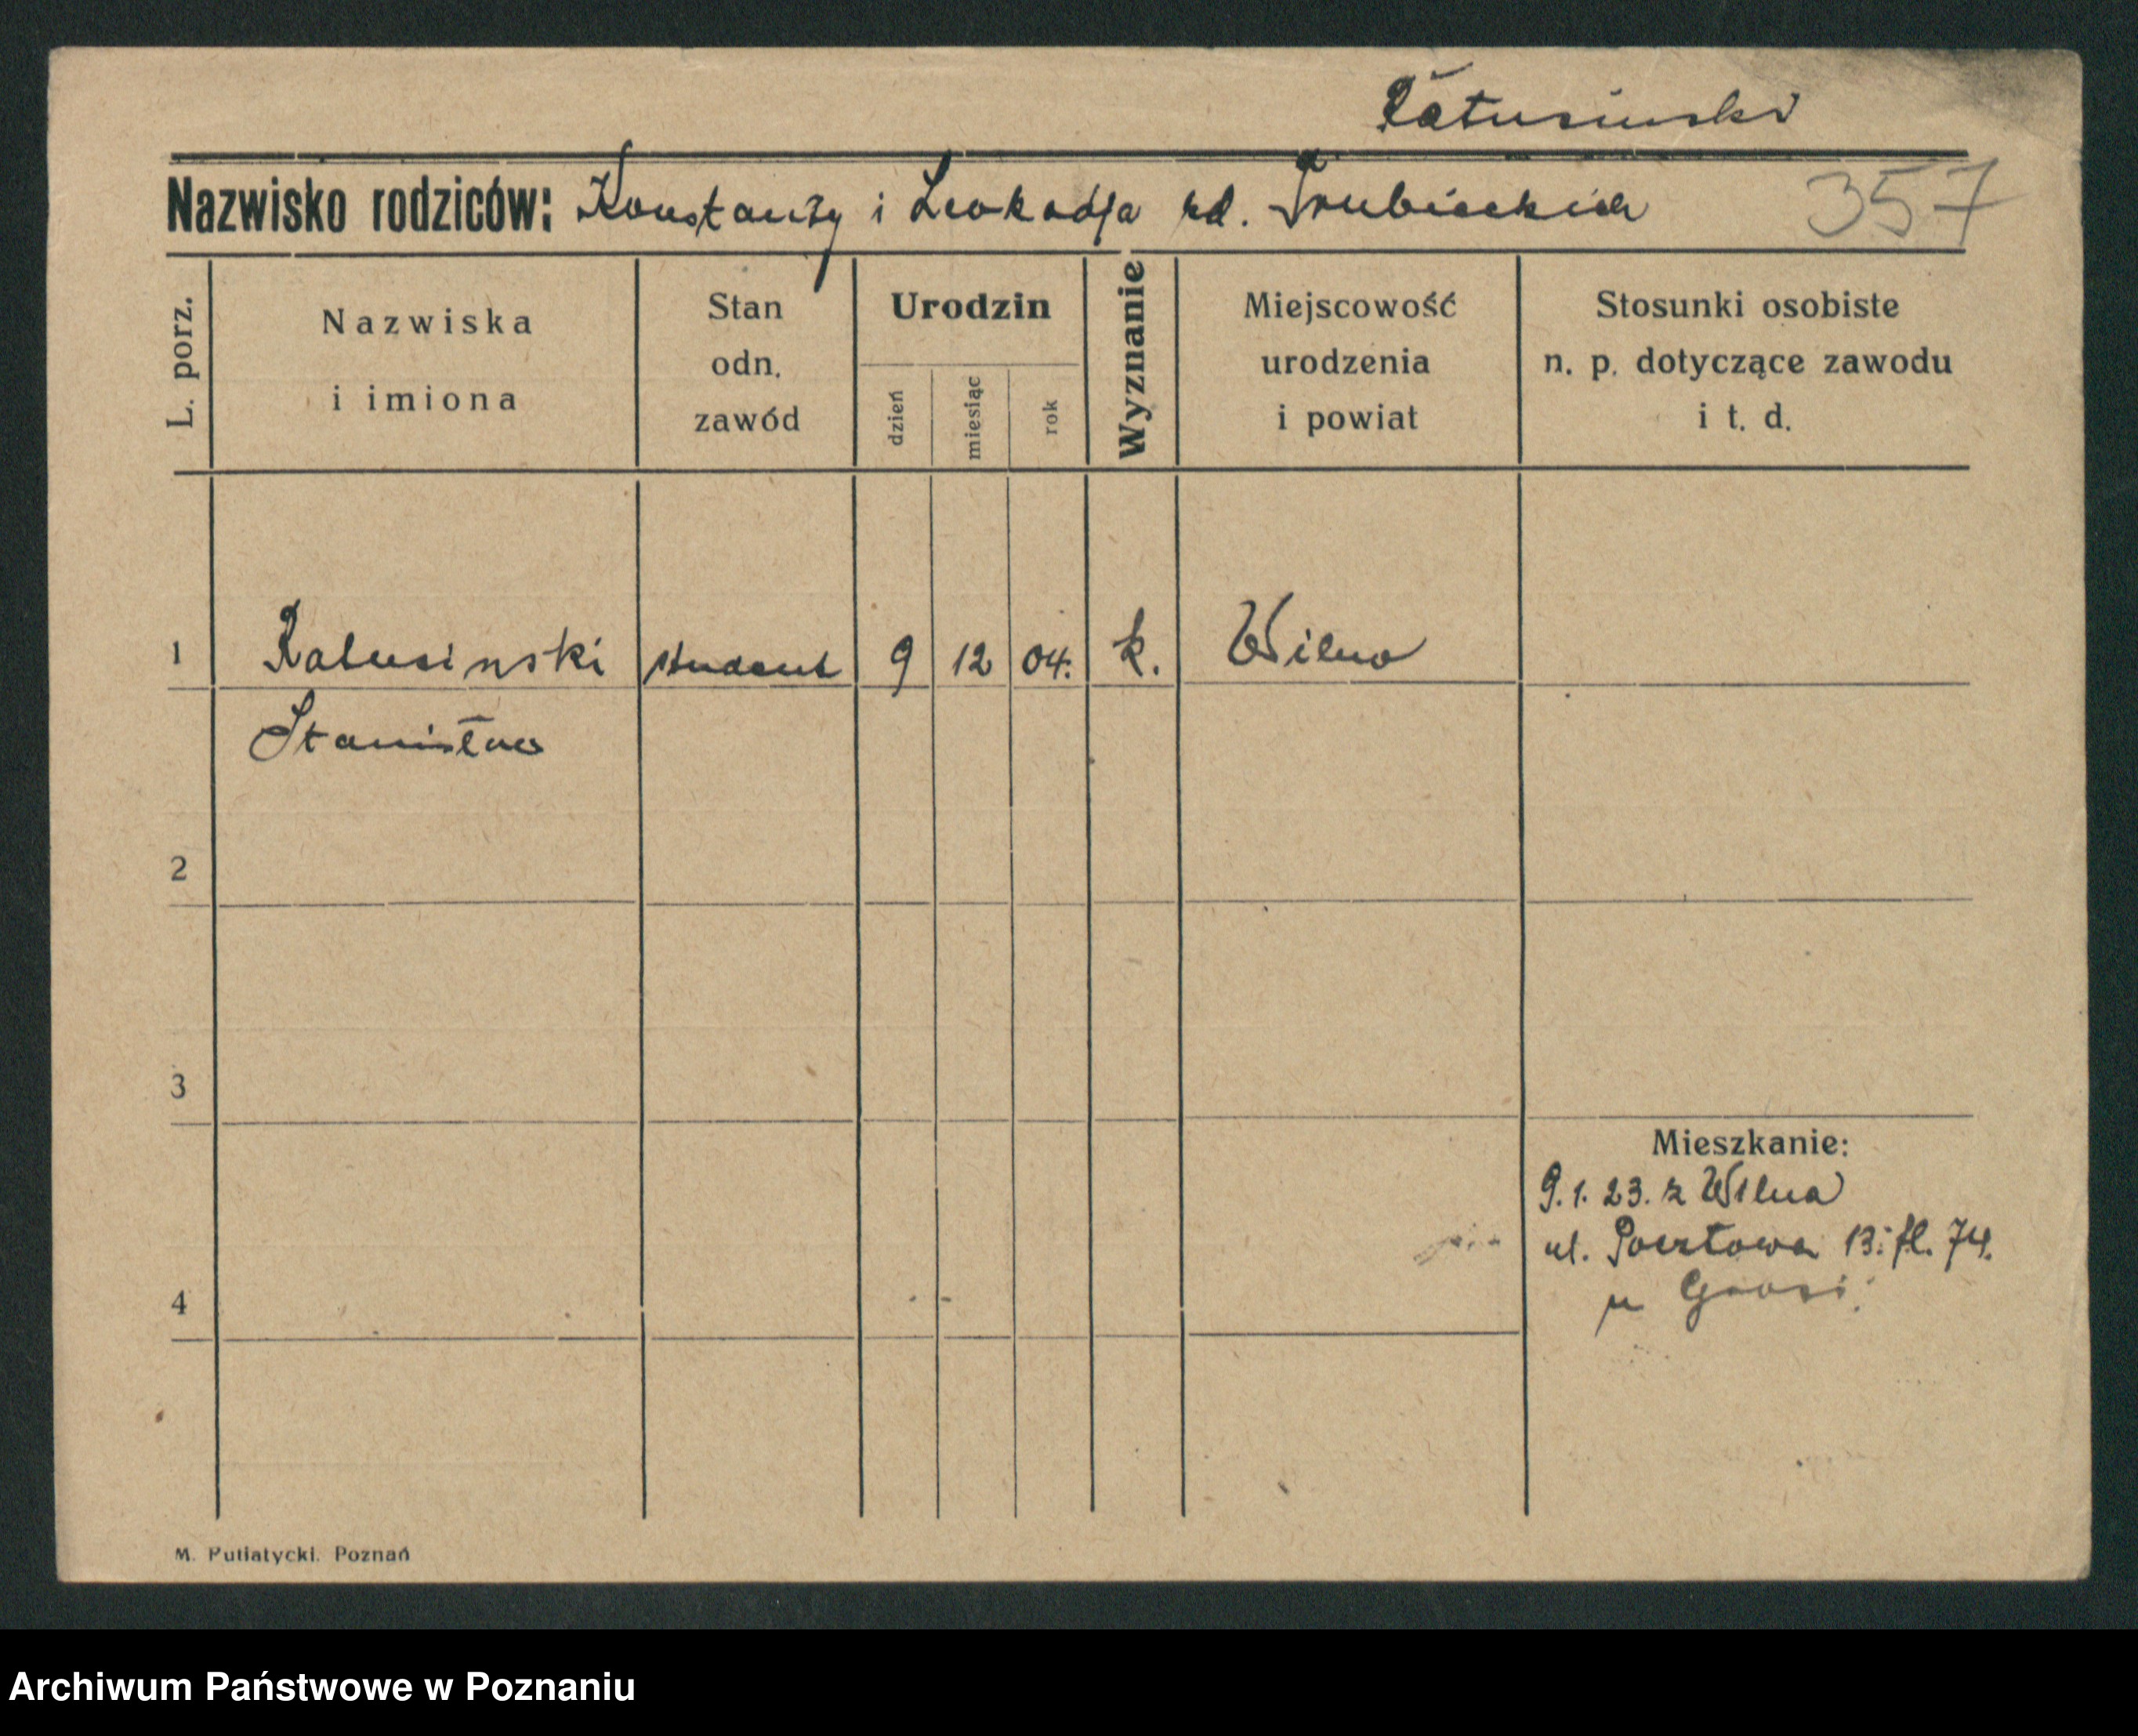 Ratusinski
Nazwisko rodziców: Konstanty i Leokadja rd. Trubieckich 357
L. porz.
Nazwiska
i imiona
Stan
odn.
zawód
Urodzin
dzień
miesiąc
rok
Wyznanie
Miejscowość
urodzenia
i powiat
Stosunki osobiste
n. p. dotyczące zawodu
i t. d.
1 Ratusinski student 9 12 04. k. Wilno
Stanisław
2
3
4
Mieszkanie:
9.1.23. z Wilna
ul. Pocztowa 13. fl. 74.
u
M. Putiatycki. Poznań
Archiwum Państwowe w Poznaniu